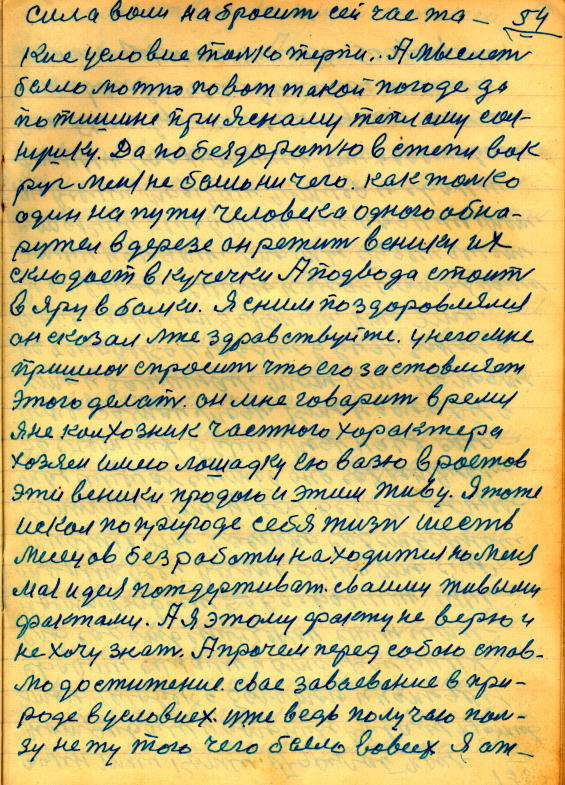 сила воли набросит сей час та- 54
кие условие толко терпи.. А мыслет
было можно по вот такой погоде да
по тишине при ясному теплому сол-
нушку. Да по бездоражю в степи вок
руг меня не было ничего. как толко
один на пути человека одного обна-
ружел в дерезе он режит веники их
склодает в кучечки А подвода стоит
в яру в балки. Я с ним поздоровлялся
он сказал мне здравствуйте. у него мне
пришлос спросит что его застовляет
этого делат. он мне говарит время
я не колхозник частного характера
хозяен имею лошадку ею вазю в ростов
эти веники продаю и этим живу. Я тоже
искал по природе себя жизн шесть
месецов без работы находится на меня
мая идея потдерживат. сваими живыми
фактами. А я этому факту не верю и
не хочу знат. А прочем перед собою став-
лю достижение. свае заваевание в при-
роде в условиех. уже ведь получаю пол-
зу не ту того чего было вовсех Я от-